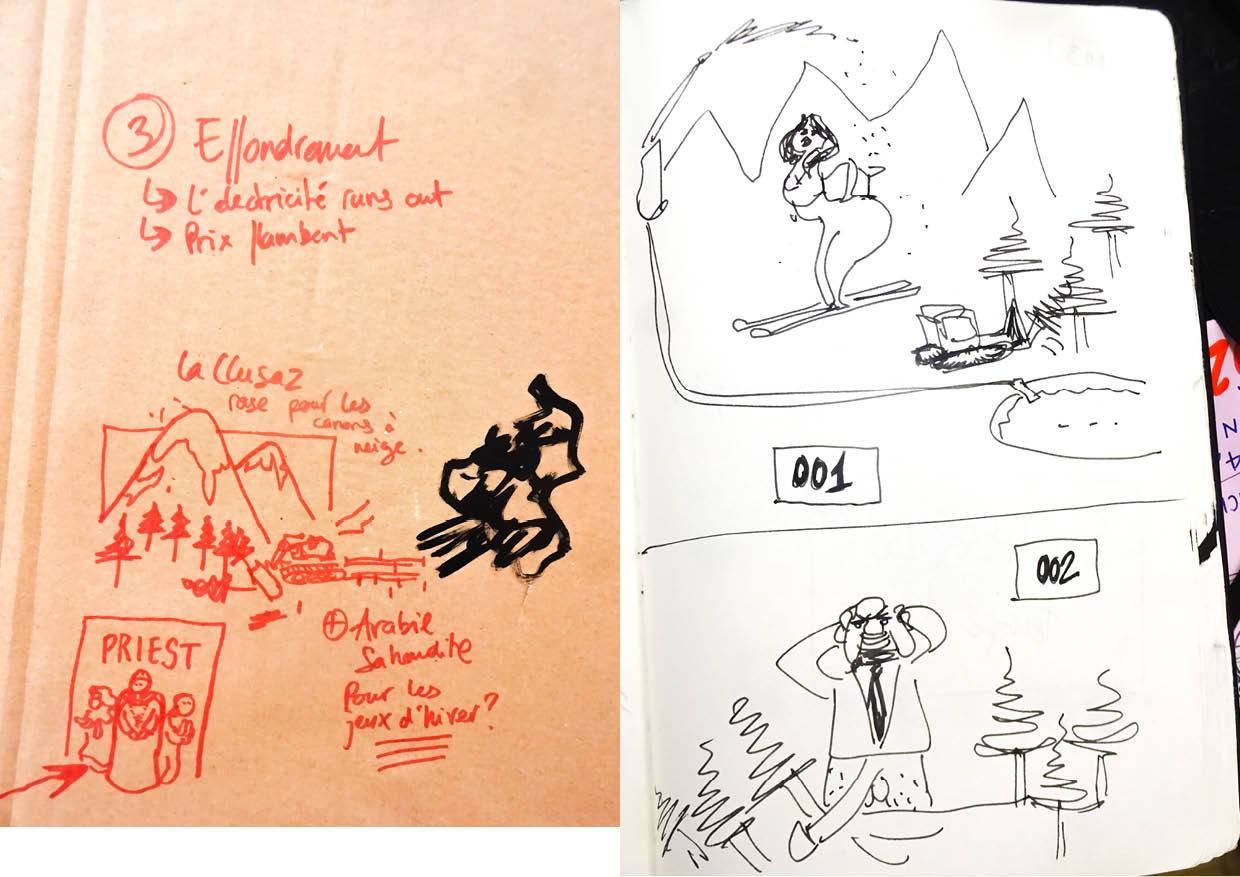 3 Effondrement
↳ L'électricité runs out
↳ Prix flambent
La Clusaz
rase pour les
canons à
neige.
PRIEST
⊕ Arabie
Sahoudite
Pour les
jeux d'hiver?
001
002